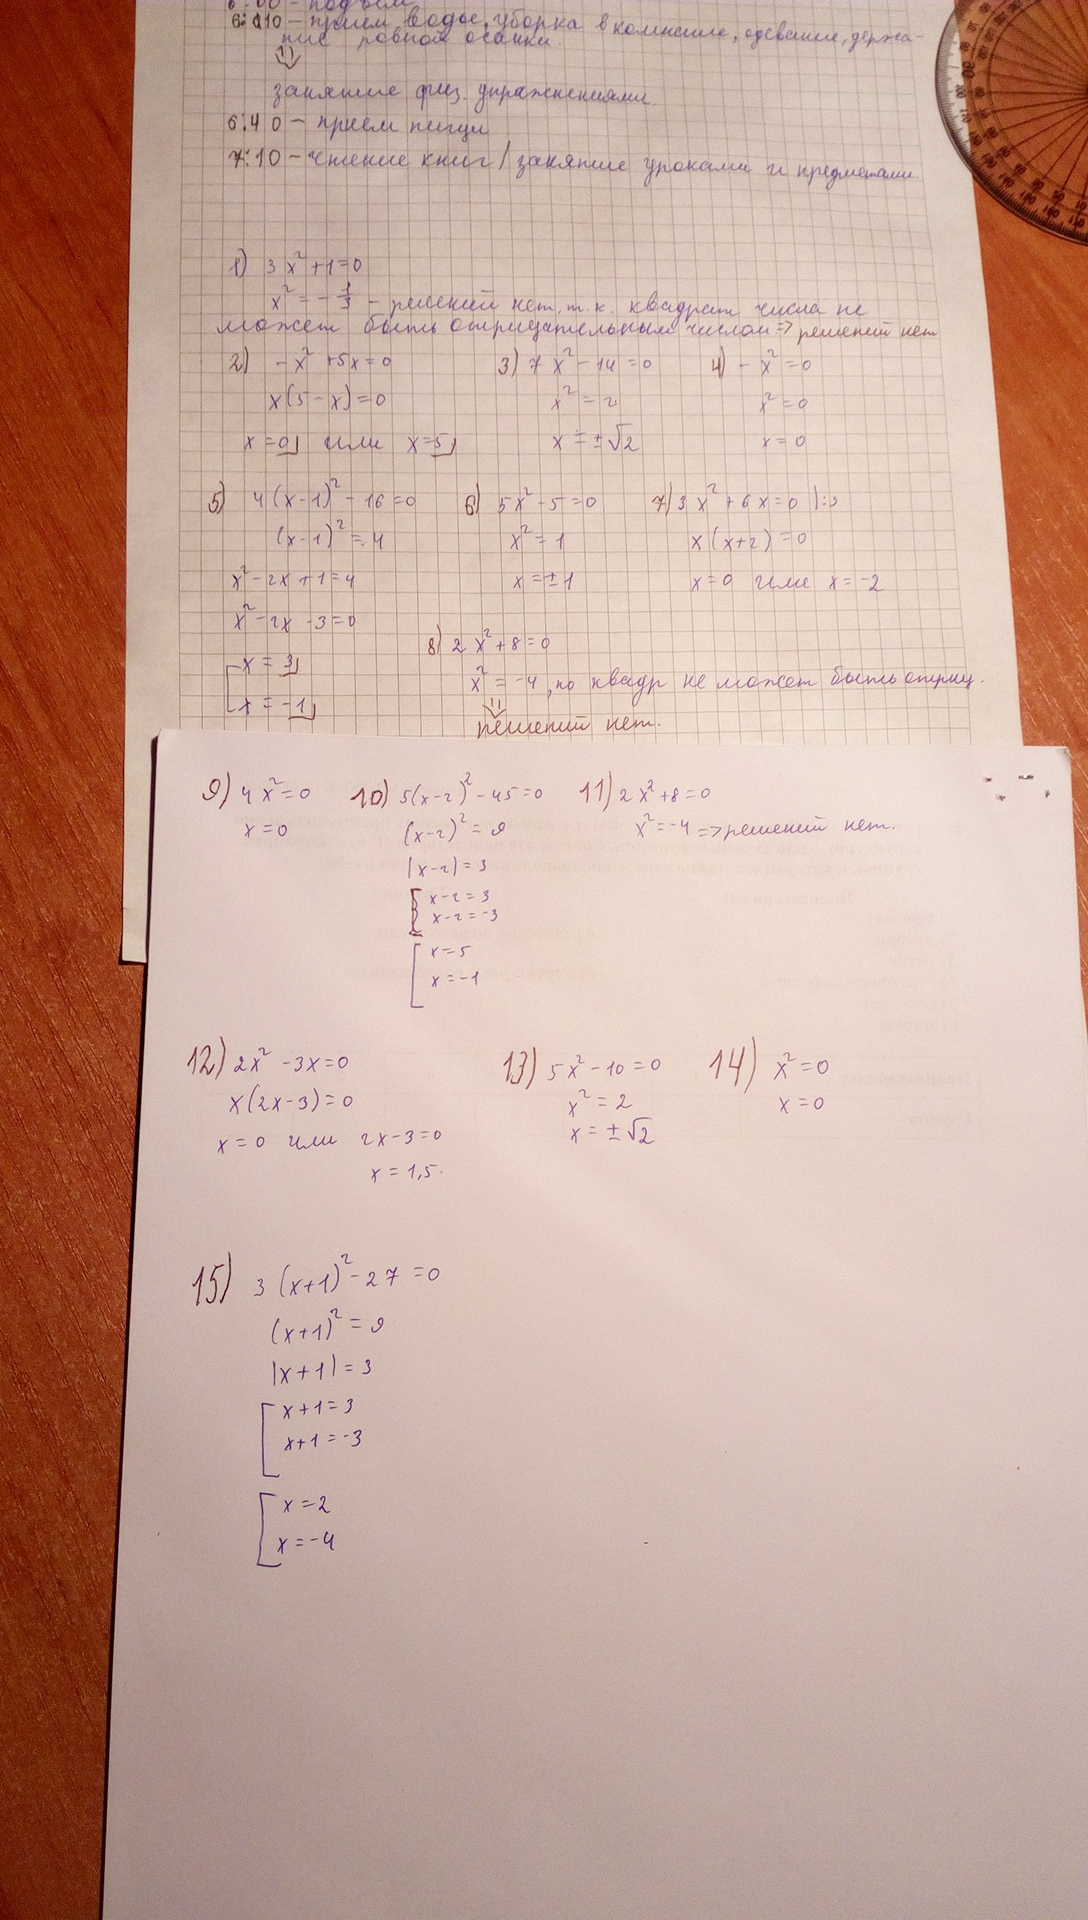 6:00 – подъём
6:10 – приём воды, уборка в комнате, одевание, держа-
ние ровной осанки.
⇓
занятие физ. упражнениями
6:40 – приём пищи
7:10 – чтение книг / занятие уроками и предметами
1) 3x² + 1 = 0
x² = -1/3 – решений нет, т.к. квадрат числа не
может быть отрицательным числом => решений нет
2) -x² + 5x = 0
x(5 - x) = 0
x = 0 или x = 5
3) 7x² - 14 = 0
x² = 2
x = ±√2
4) -x² = 0
x² = 0
x = 0
5) 4(x - 1)² - 16 = 0
(x - 1)² = 4
x² - 2x + 1 = 4
x² - 2x - 3 = 0
[ x = 3
x = -1
6) 5x² - 5 = 0
x² = 1
x = ±1
7) 3x² + 6x = 0 |:3
x(x + 2) = 0
x = 0 или x = -2
8) 2x² + 8 = 0
x² = -4, но квадр не может быть отриц.
⇓
решений нет.
9) 4x² = 0
x = 0
10) 5(x - 2)² - 45 = 0
(x - 2)² = 9
|x - 2| = 3
[ x - 2 = 3
x - 2 = -3
[ x = 5
x = -1
11) 2x² + 8 = 0
x² = -4 => решений нет.
12) 2x² - 3x = 0
x(2x - 3) = 0
x = 0 или 2x - 3 = 0
x = 1,5.
13) 5x² - 10 = 0
x² = 2
x = ±√2
14) x² = 0
x = 0
15) 3(x + 1)² - 27 = 0
(x + 1)² = 9
|x + 1| = 3
[ x + 1 = 3
x + 1 = -3
[ x = 2
x = -4